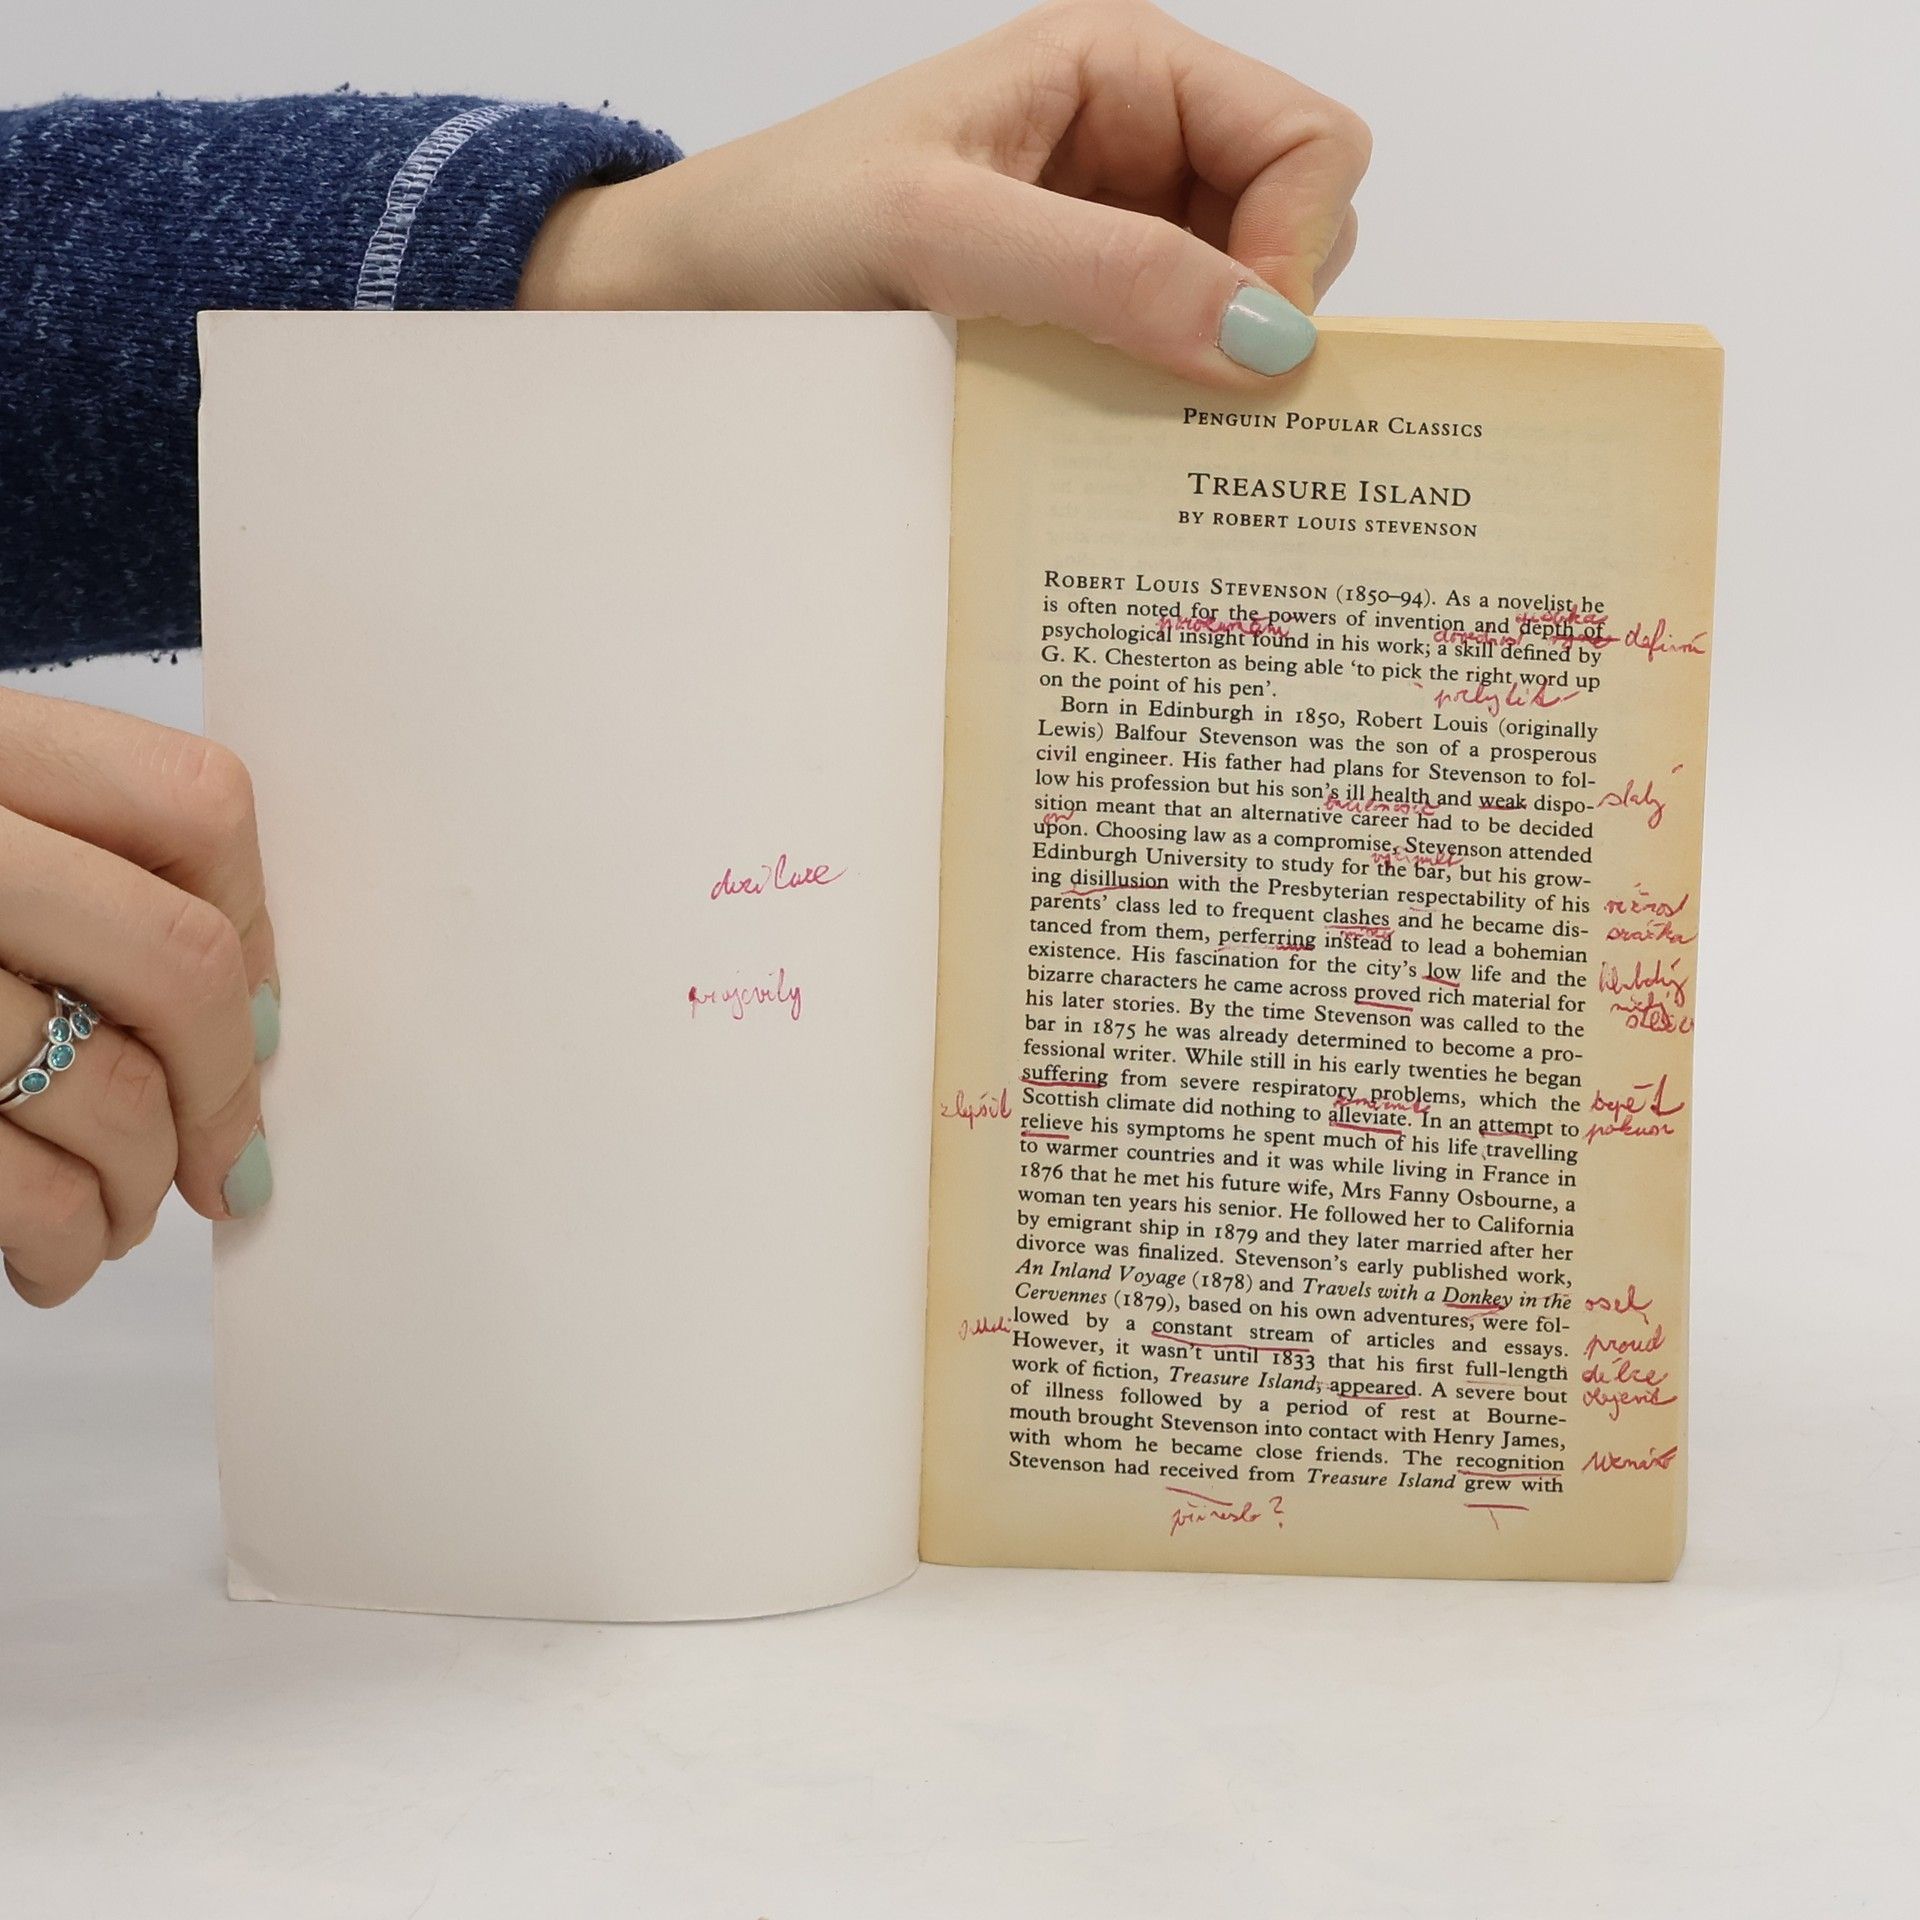 projevily
PENGUIN POPULAR CLASSICS
TREASURE ISLAND
BY ROBERT LOUIS STEVENSON
ROBERT LOUIS STEVENSON (1850–94). As a novelist he
is often noted for the powers of invention and depth of
psychological insight found in his work; a skill defined by
G. K. Chesterton as being able ‘to pick the right word up
on the point of his pen’.
Born in Edinburgh in 1850, Robert Louis (originally
Lewis) Balfour Stevenson was the son of a prosperous
civil engineer. His father had plans for Stevenson to fol-
low his profession but his son’s ill health and weak dispo-
slabý
sition meant that an alternative career had to be decided
upon. Choosing law as a compromise, Stevenson attended
Edinburgh University to study for the bar, but his grow-
ing disillusion with the Presbyterian respectability of his
parents’ class led to frequent clashes and he became dis-
srážka
tanced from them, perferring instead to lead a bohemian
existence. His fascination for the city’s low life and the
bizarre characters he came across proved rich material for
his later stories. By the time Stevenson was called to the
bar in 1875 he was already determined to become a pro-
fessional writer. While still in his early twenties he began
suffering from severe respiratory problems, which the
zlepšit
Scottish climate did nothing to alleviate. In an attempt to
pokus
relieve his symptoms he spent much of his life travelling
to warmer countries and it was while living in France in
1876 that he met his future wife, Mrs Fanny Osbourne, a
woman ten years his senior. He followed her to California
by emigrant ship in 1879 and they later married after her
divorce was finalized. Stevenson’s early published work,
An Inland Voyage (1878) and Travels with a Donkey in the
osel
Cervennes (1879), based on his own adventures, were fol-
lowed by a constant stream of articles and essays.
proud
However, it wasn’t until 1833 that his first full-length
délce
work of fiction, Treasure Island, appeared. A severe bout
objevit
of illness followed by a period of rest at Bourne-
mouth brought Stevenson into contact with Henry James,
with whom he became close friends. The recognition
Stevenson had received from Treasure Island grew with
přineslo?